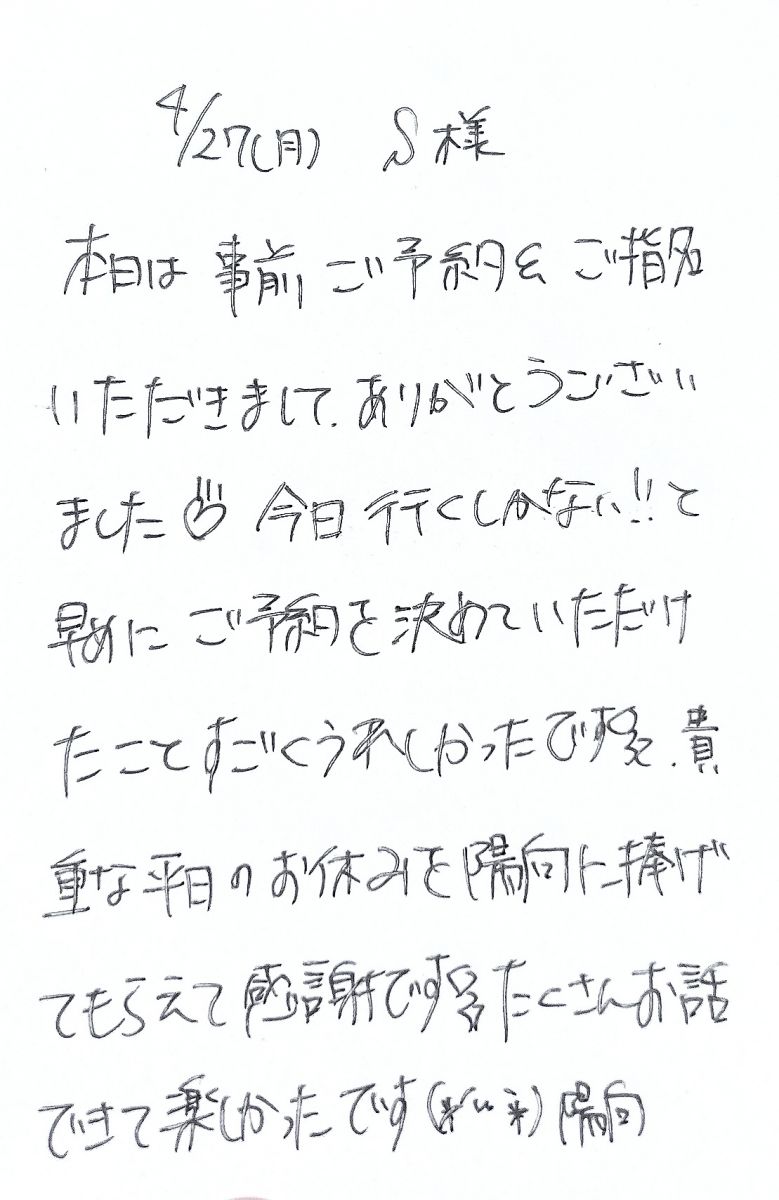 4/27(月) S様
本日は事前ご予約&ご指名
いただきまして、ありがとうござい
ました 今日行くしかない!!と
早めにご予約を決めていただけ
たことすごくうれしかったです 貴
重な平日のお休みを陽向に捧げ
てもらえて感謝です たくさんお話
できて楽しかったです(*ˊᵕˋ*)陽向